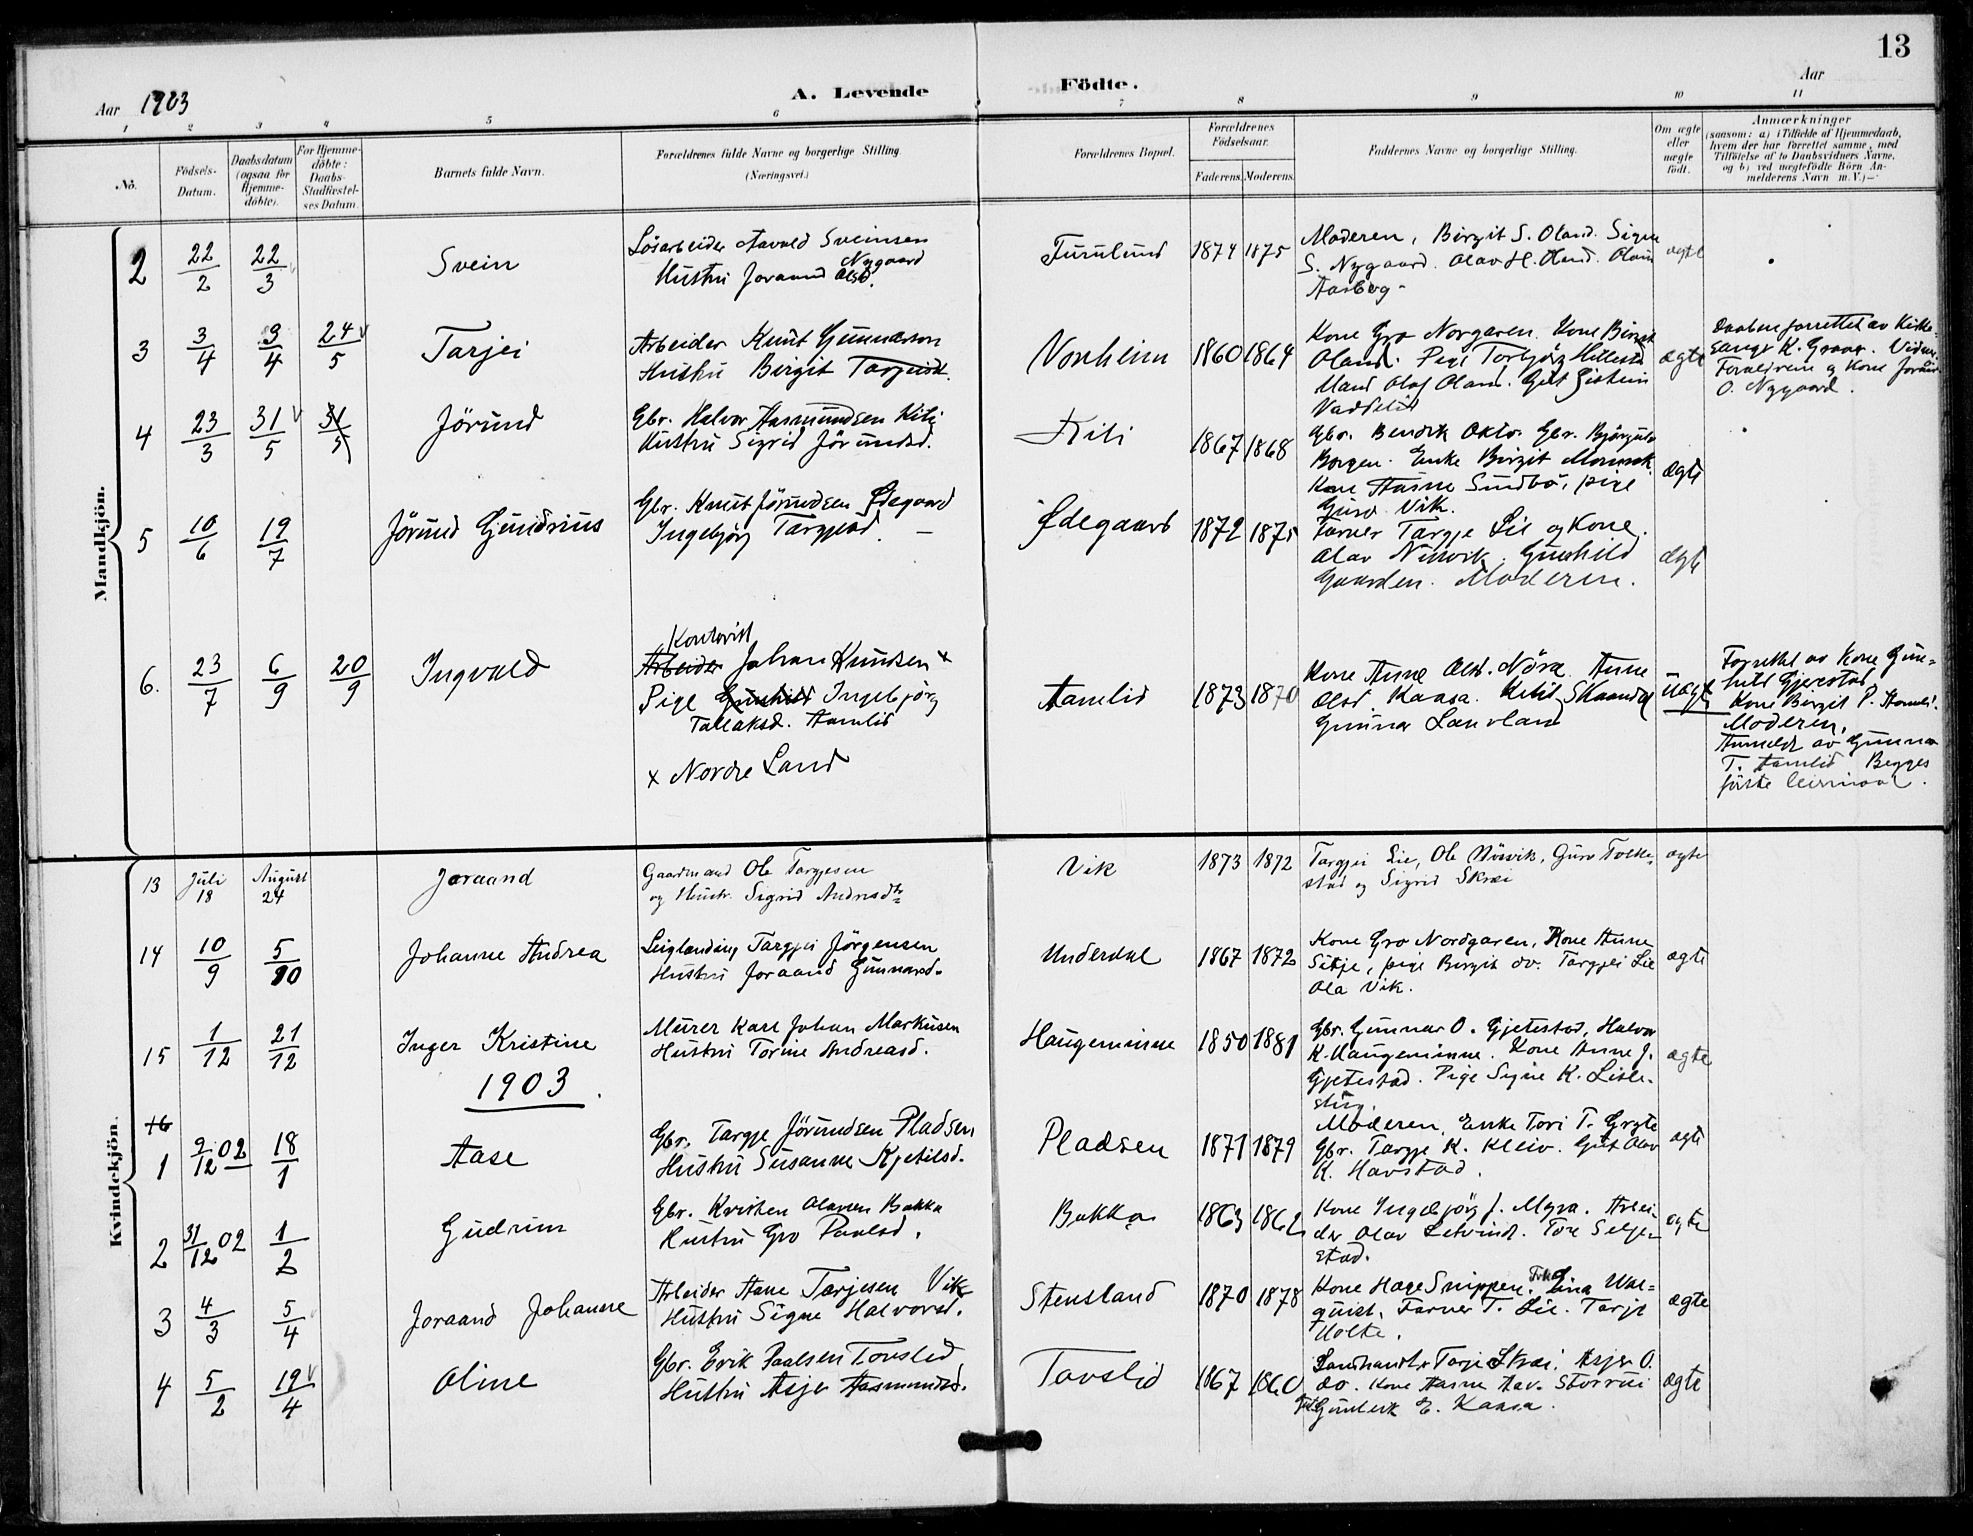 13
Aar 1903
A. Levende
Födte.
Aar
1 2 3 4 5 6 7 8 9 10 11
No.
Födsels-
Datum.
Daabsdatum
(ogsaa for
Hjemme-
döbte).
For Hjemme-
döbte:
Daabs-
Stadfæstel-
ses Datum.
Barnets fulde Navn.
Forældrenes fulde Navne og borgerlige Stilling
(Næringsvei.)
Forældrenes Bopæl.
Forældrenes
Födselsaar.
Faderens. Moderens.
Faddernes Navne og borgerlige Stilling.
Om ægte
eller
uægte
födt.
Anmærkninger
(saasom: a) i Tilfælde af Hjemmedaab,
hvem der har forrettet samme, med
Tilföielse af to Daabsvidners Navne,
og b) ved uægtefödte Börn An-
melderens Navn m.V.)—
Mandkjön.
2 22/2 22/3 Svein
Lösarbeider Aavald Sveinsen
Nygaard
Hustru Joraand Olsd.
Furulund 1874 1875
Moderen, Birgit S. Oland. Signe
S. Nygaard. Olav H. Oland. Olav
Aasberg-
ægte
3 3/4 3/4 24/5 Tarjei
Arbeider Knut Gunnarson
Hustru Birgit Tarjeisd.
Vonheim 1860 1864
Kone Gro Norgaren. Kone Birgit
Oland. Pige Torbjörg Hillestd
Mand Olaf Oland. Gut Eistein
Vaddelid
ægte
Daaben forrettet av Kirke-
sanger K. Graver. Vidner
Foreldrene og Kone Joraand
O. Nygaard.
4 23/3 31/5 31/5 Jörund
Gbr. Halvor Aasmundsen Kili
Hustru Sigrid Jörundsd.
Kili 1867 1868
Gbr. Bendik Okto. Gbr. Björgulv
Borgen. Enke Birgit
Kone Aasne Sundbö, pige
Guro Vik.
ægte
5 10/6 19/7 Jörund Gundrius
Gbr. Knut Jörundsen Ødegaard
Ingebjörg Targjesd. —
Ødegaard 1872 1875
Farver Targje Lie og Kone.
Olav Nisvik. Gunhild
Gaarden. Moderen.
ægte
6. 23/7 6/9 20/9 Ingvald
Kontorist
Arbeider Johan Knudsen x
Pige Gunhild Ingebjörg
Tallaksd. Aamlid
x Nordre Land
Aamlid 1873 1870
Kone Anne Olsd. Nöra. Anne
Olsd. Kaasa. Ketil Skaandal
Gunnar Lauvland
uægte
Forrettet av Kone Gun-
hild Gjerstad
Kone Birgit P. Aamlid.
Moderen.
Anmeldt av Gunnar
T. Aamlid Begges
förste leiermaal.
Kvindekjön.
13 Juli 18 August 24 Joraand
Gaardmand Ole Targjesen
og Hustr. Sigrid Andreasdtr
Vik 1873 1872
Targjei Lie, Ole Nisvik, Guro Tolke-
stad og Sigrid Skrei
ægte
14 10/9 5/10 Johanne Andrea
Leiglending Targjei Jörgensen
Hustru Joraand Gunnarsd.
Underdal 1867 1872
Kone Gro Nordgaren, Kone Anne
Sitje, pige Birgit do. Targjei Lie
Ola Vik.
ægte
15 1/12 21/12 Inger Kristine
Murer Karl Johan Markusen
Hustru Torine Andreasd.
Haugeminne 1850 1881
Gbr. Gunnar O. Gjetestad, Halvor
K. Haugeminne. Kone Anne J.
Gjetestad. Pige Signe K. Lisle-
stug.
ægte
1903.
16
1 9/12 02 18/1 Aase
Gbr. Targje Jörundsen Pladsen
Hustru Susanne Kjetilsd.
Pladsen 1871 1879
Moderen, Enke Tori T. Gryte
Gbr. Targje K. Kleiv. Gut Olav
K. Havstad.
ægte
2 31/12 02 1/2 Gudrun
Gbr. Kristen Olavsen Bakka
Hustru Gro Paalsd.
Bakka 1863 1862
Kone Ingebjörg J. Myra. Arbei-
der Olav Letvind. Tore Selje-
stad.
ægte
3 4/3 5/4 Joraand Johanne
Arbeider Aane Tarjesen Vik
Hustru Signe Halvorsd.
Stensland 1870 1878
Kone Hage Snippen. Lina Une-
quist. Farver T. Lie. Tarje
Holte.
ægte
4 5/2 19/4 Oline
Gbr. Erik Paalsen Tovslid
Hustru Asjer Aasmundsd.
Tovslid 1867 1860
Landhandlr Tarje Skrei. Asjer O.
do. Kone Aasne Aav. Storrui
Gut Gunleik E. Kaasa.
ægte